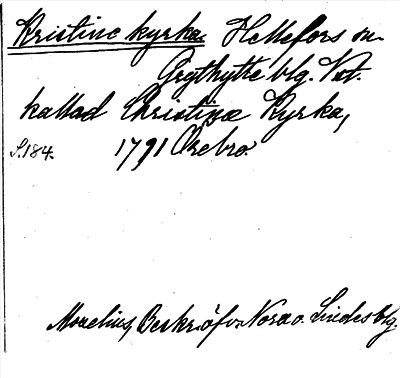 Kristine kyrka. Hellefors sn.
Grythytte blg. Vst.
kallad Christinæ Kyrka,
S. 184. 1791 Örebro.
Morelius, Beskr. öfv. Nora o. Lindes blg.